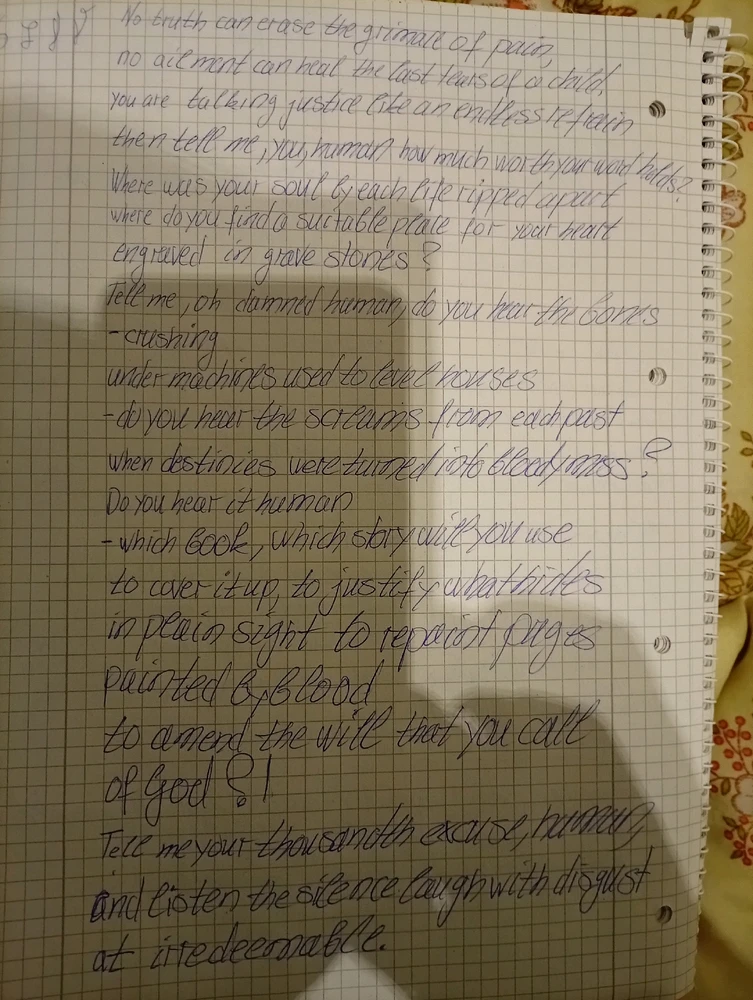 No truth can erase the grimace of pain,
no ailment can heal the last tears of a child,
you are talking justice like an endless refrain
then tell me, you, human how much worth your word holds?
Where was your soul by each life ripped apart
where do you find a suitable place for your heart
engraved in grave stones?
Tell me, oh damned human, do you hear the bones
-crushing
under machines used to level houses
-do you hear the screams from each past
when destinies were turned into bloody mess?
Do you hear it human
-which book, which story will you use
to cover it up, to justify what hides
in plain sight to repaint pages
painted by blood
to amend the will that you call
of God?!
Tell me your thousandth excuse, human,
and listen the silence laugh with disgust
at irredeemable.